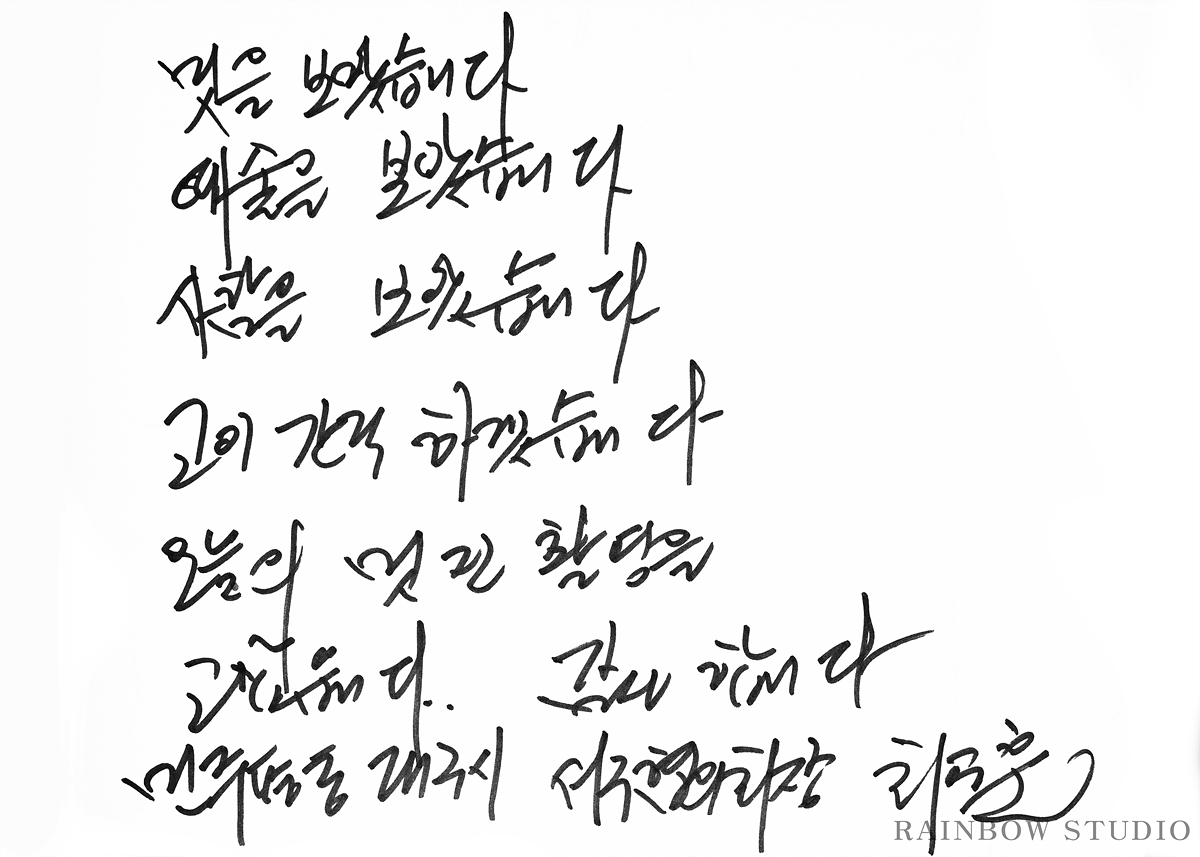 멋을 보았습니다
예술을 보았습니다
사람을 보았습니다
고이 간직 하겠습니다
오늘의 멋진 활동을
감사 합니다
민주 대구시
RAINBOW STUDIO